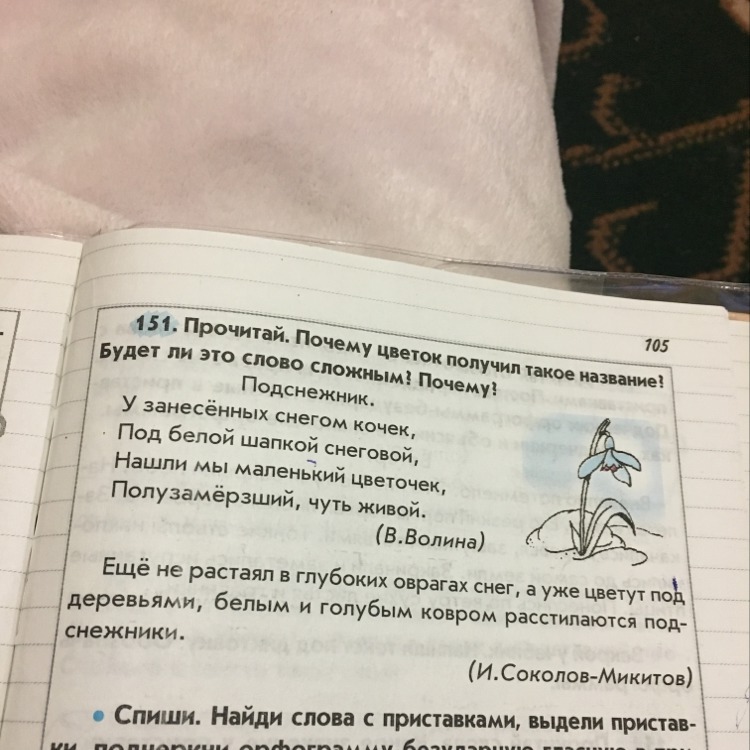 105
151. Прочитай. Почему цветок получил такое название?
Будет ли это слово сложным? Почему?
Подснежник.
У занесённых снегом кочек,
Под белой шапкой снеговой,
Нашли мы маленький цветочек,
Полузамёрзший, чуть живой.
(В.Волина)
Ещё не растаял в глубоких оврагах снег, а уже цветут под
деревьями, белым и голубым ковром расстилаются под-
снежники.
(И.Соколов-Микитов)
• Спиши. Найди слова с приставками, выдели пристав-
ки, подчеркни орфограмму безударную гласную в